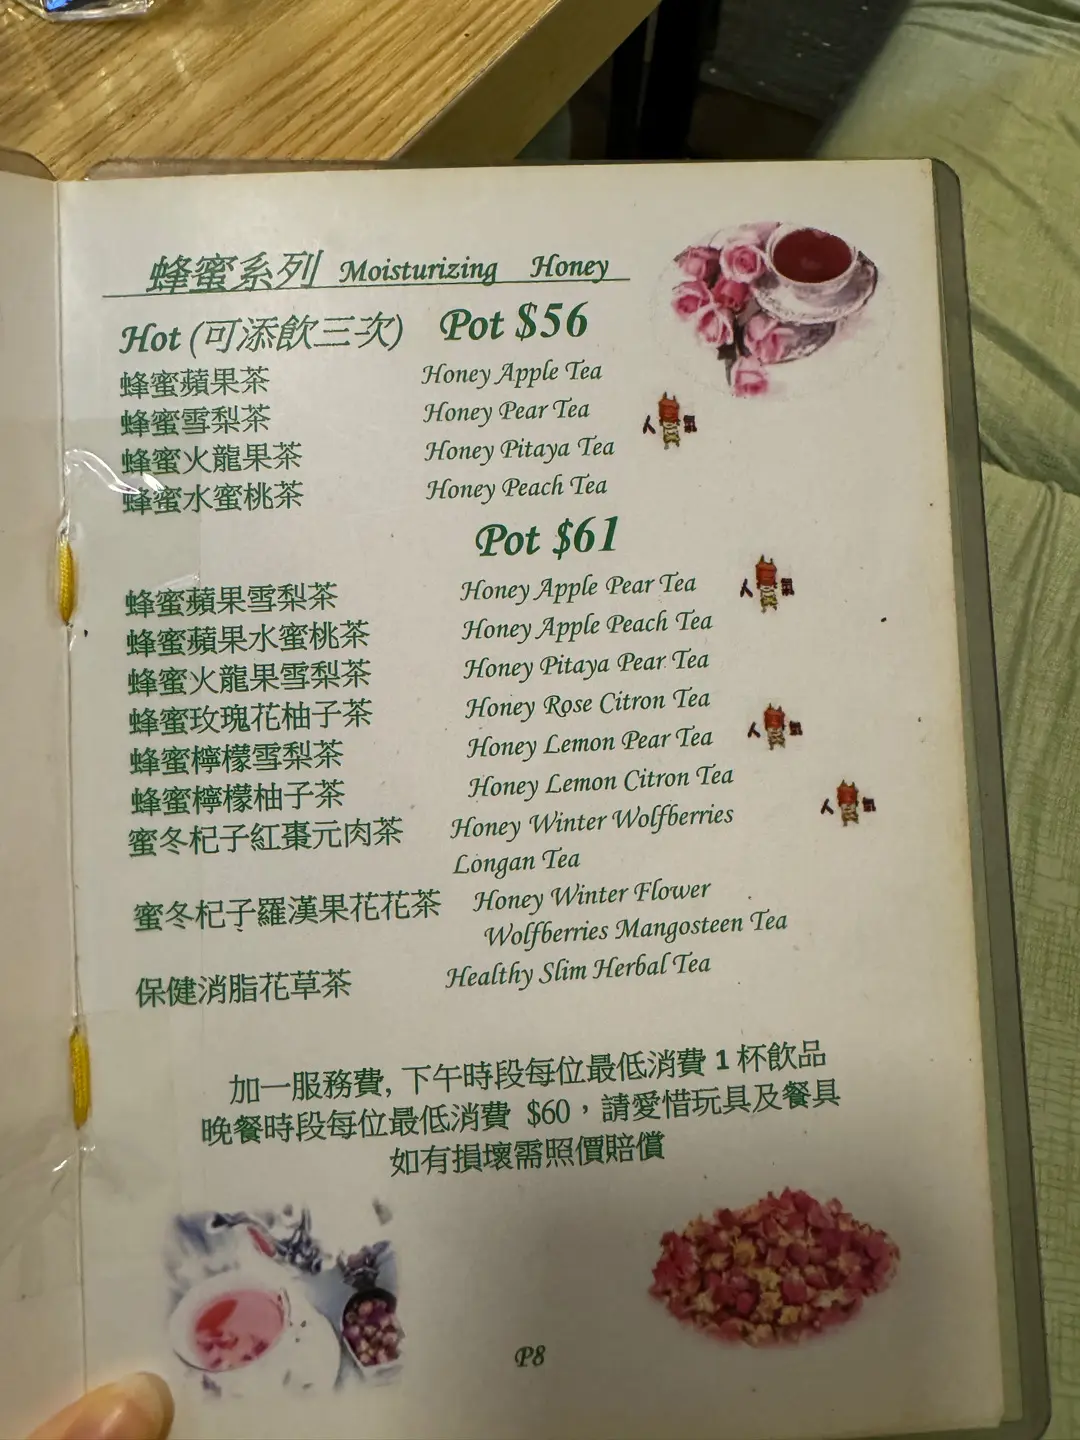 蜂蜜系列 Moisturizing Honey
Hot (可添飲三次) Pot $56
蜂蜜蘋果茶 Honey Apple Tea
蜂蜜雪梨茶 Honey Pear Tea 人氣
蜂蜜火龍果茶 Honey Pitaya Tea
蜂蜜水蜜桃茶 Honey Peach Tea
Pot $61
蜂蜜蘋果雪梨茶 Honey Apple Pear Tea 人氣
蜂蜜蘋果水蜜桃茶 Honey Apple Peach Tea
蜂蜜火龍果雪梨茶 Honey Pitaya Pear Tea
蜂蜜玫瑰花柚子茶 Honey Rose Citron Tea
蜂蜜檸檬雪梨茶 Honey Lemon Pear Tea 人氣
蜂蜜檸檬柚子茶 Honey Lemon Citron Tea
蜜冬杞子紅棗元肉茶 Honey Winter Wolfberries 人氣
Longan Tea
蜜冬杞子羅漢果花花茶 Honey Winter Flower
Wolfberries Mangosteen Tea
保健消脂花草茶 Healthy Slim Herbal Tea
加一服務費, 下午時段每位最低消費 1 杯飲品
晚餐時段每位最低消費 $60，請愛惜玩具及餐具
如有損壞需照價賠償
P8